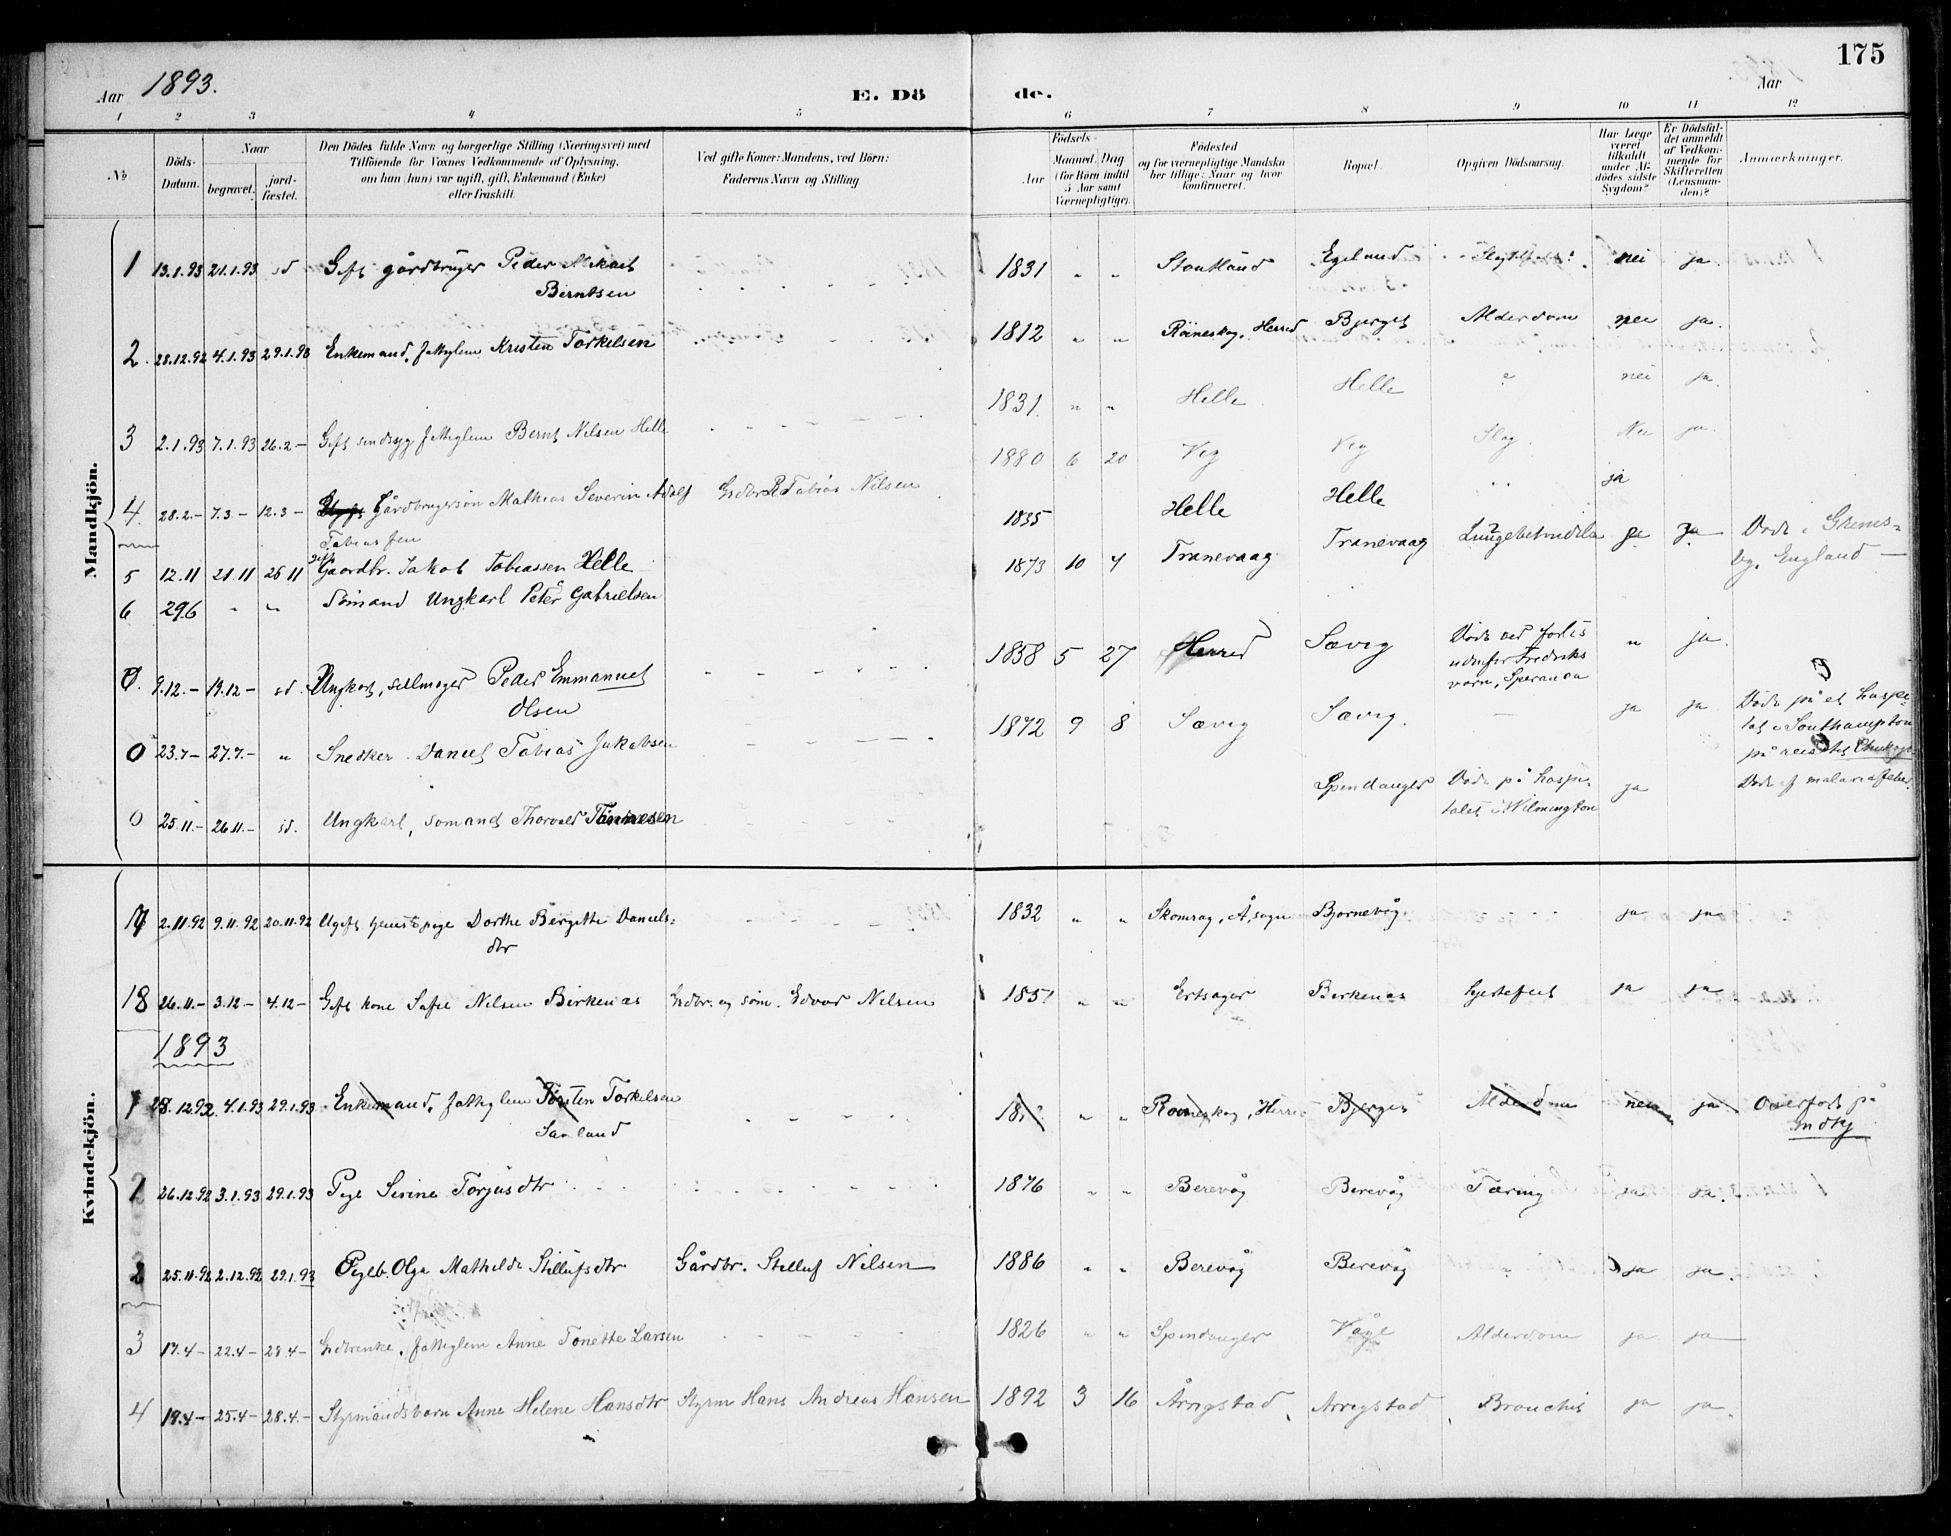 175
Aar 1893.
E. Dö de.
Aar
1 2 3 4 5 6 7 8 9 10 11 12
No
Döds-Datum.
Naar
begravet.
jord-fæstet.
Den Dödes fulde Navn og borgerlige Stilling (Næringsvei) med
Tilföiende for Voxnes Vedkommende af Oplysning,
om han (hun) var ugift, gift, Enkemand (Enke)
eller fraskilt.
Ved gifte Koner: Mandens, ved Börn:
Faderens Navn og Stilling
Födsels-
Aar
Maaned. Dag
(for Börn indtil
5 Aar samt
Værnepligtige).
Födested
og for værnepligtige Mandska-
ber tillige: Naar og hvor
konfirmeret.
Bopæl.
Opgiven Dödsaarsag.
Har Læge
været
tilkaldt
under Af-
dödes sidste
Sygdom?
Er Dödsfal-
det anmeldt
af Vedkom-
mende for
Skifteretten
(Lensman-
den)?
Anmærkninger.
Mandkjön.
1 13.1.93 21.1.93 sd Gift gårdbruger Peder Mikael
Berntsen
1831 " " Stautland Egeland nei ja.
2. 28.12.92 4.1.93 29.1.93 Enkemand, fattiglem Kristen Torkelsen
1812 " " Röineskog, Herred Bjerget Alderdom nei ja.
3 2.1.93 7.1.93 26.2 – Gift sindssyg fattiglem Bernt Nilsen Helle
1831. " " Helle Helle " nei ja.
4. 28.2.– 7.3 – 12.3 – Gårdbrugersön Mathias Severin Adolf
Tobiassen
Grdbr. Tobias Nilsen
1880 6 20 Vig Vig Slag. Nei ja.
5 12.11 21.11 26 11 gift Gaardbr. Jakob Tobiassen Helle
1835 Helle Helle ja
6 29.6 " " Sömand Ungkarl Peter Gabrielsen
1873 10 4 Tranevaag Tranevaag Lungebetændelse ja ja Döde i Grims-
by, England –
0. 9.12.– 19.12 – sd. Ungkarl, seilmager Peder Emmanuel
Olsen
1858 5 27 Herred Sævig Döde ved forlis
udenfor Fredriks
værn, Speranza " ja
0 23.7 – 27.7.– " Snedker Daniel Tobias Jakobsen
1872 9 8 Sævig Sævig. – ja ja Döde på et hospi-
tal i Southampton
på reise til
0 25.11.– 26.11.– sd. Ungkarl, sömand Thorvald Tönnesen
Spindanger Döde på hospi-
talet i Wilmington ja Döde af malariafeber.
Kvindekjön.
17 2.11.92 9.11.92 20.11.92 Ugift tjenestepige Dorthe Bergitte Daniels-
dtr
1832 " " Skomrag, Å, sogn Bjornevåg ja ja
18 26.11.– 3.12 – 4.12 – Gift kone Sofie Nilsen Birkenæs Grdbr. og söm. Edvar Nilsen
1851 " " Ertsager Birkenæs hjertefeil ja ja
1893
1 28.12.92. 4.1.93 29.1.93 Enkemand, fattiglem Torsten Torkelsen
" " Röineskog, Herred Bjerget Alderdom nei ja. Overfört på
Mdkj
2 26.12.92 3.1.93 29.1.93 Pige Serine Torjusdtr
1876 " " Berevåg Berevåg Tæring ja ja.
3 25.11.92 2.12.92 29.1.93 Pigeb. Olga Mathilde Stillufsdtr Gårdbr. Stilluf Nilsen
1886 " " Berevåg Berevåg " ja ja.
3 17.4 – 22.4 – 28.4 – Grdbrenke, fattiglem Anne Tonette Larsen
1826 " " Spindanger Våge Alderdom ja ja
4 19.4 – 25.4 – 28.4 – Styrmandsbarn Anne Helene Hansdtr Styrm Hans Andreas Hansen
1892 3 16 Årrigstad Arrigstad Bronchit ja ja.